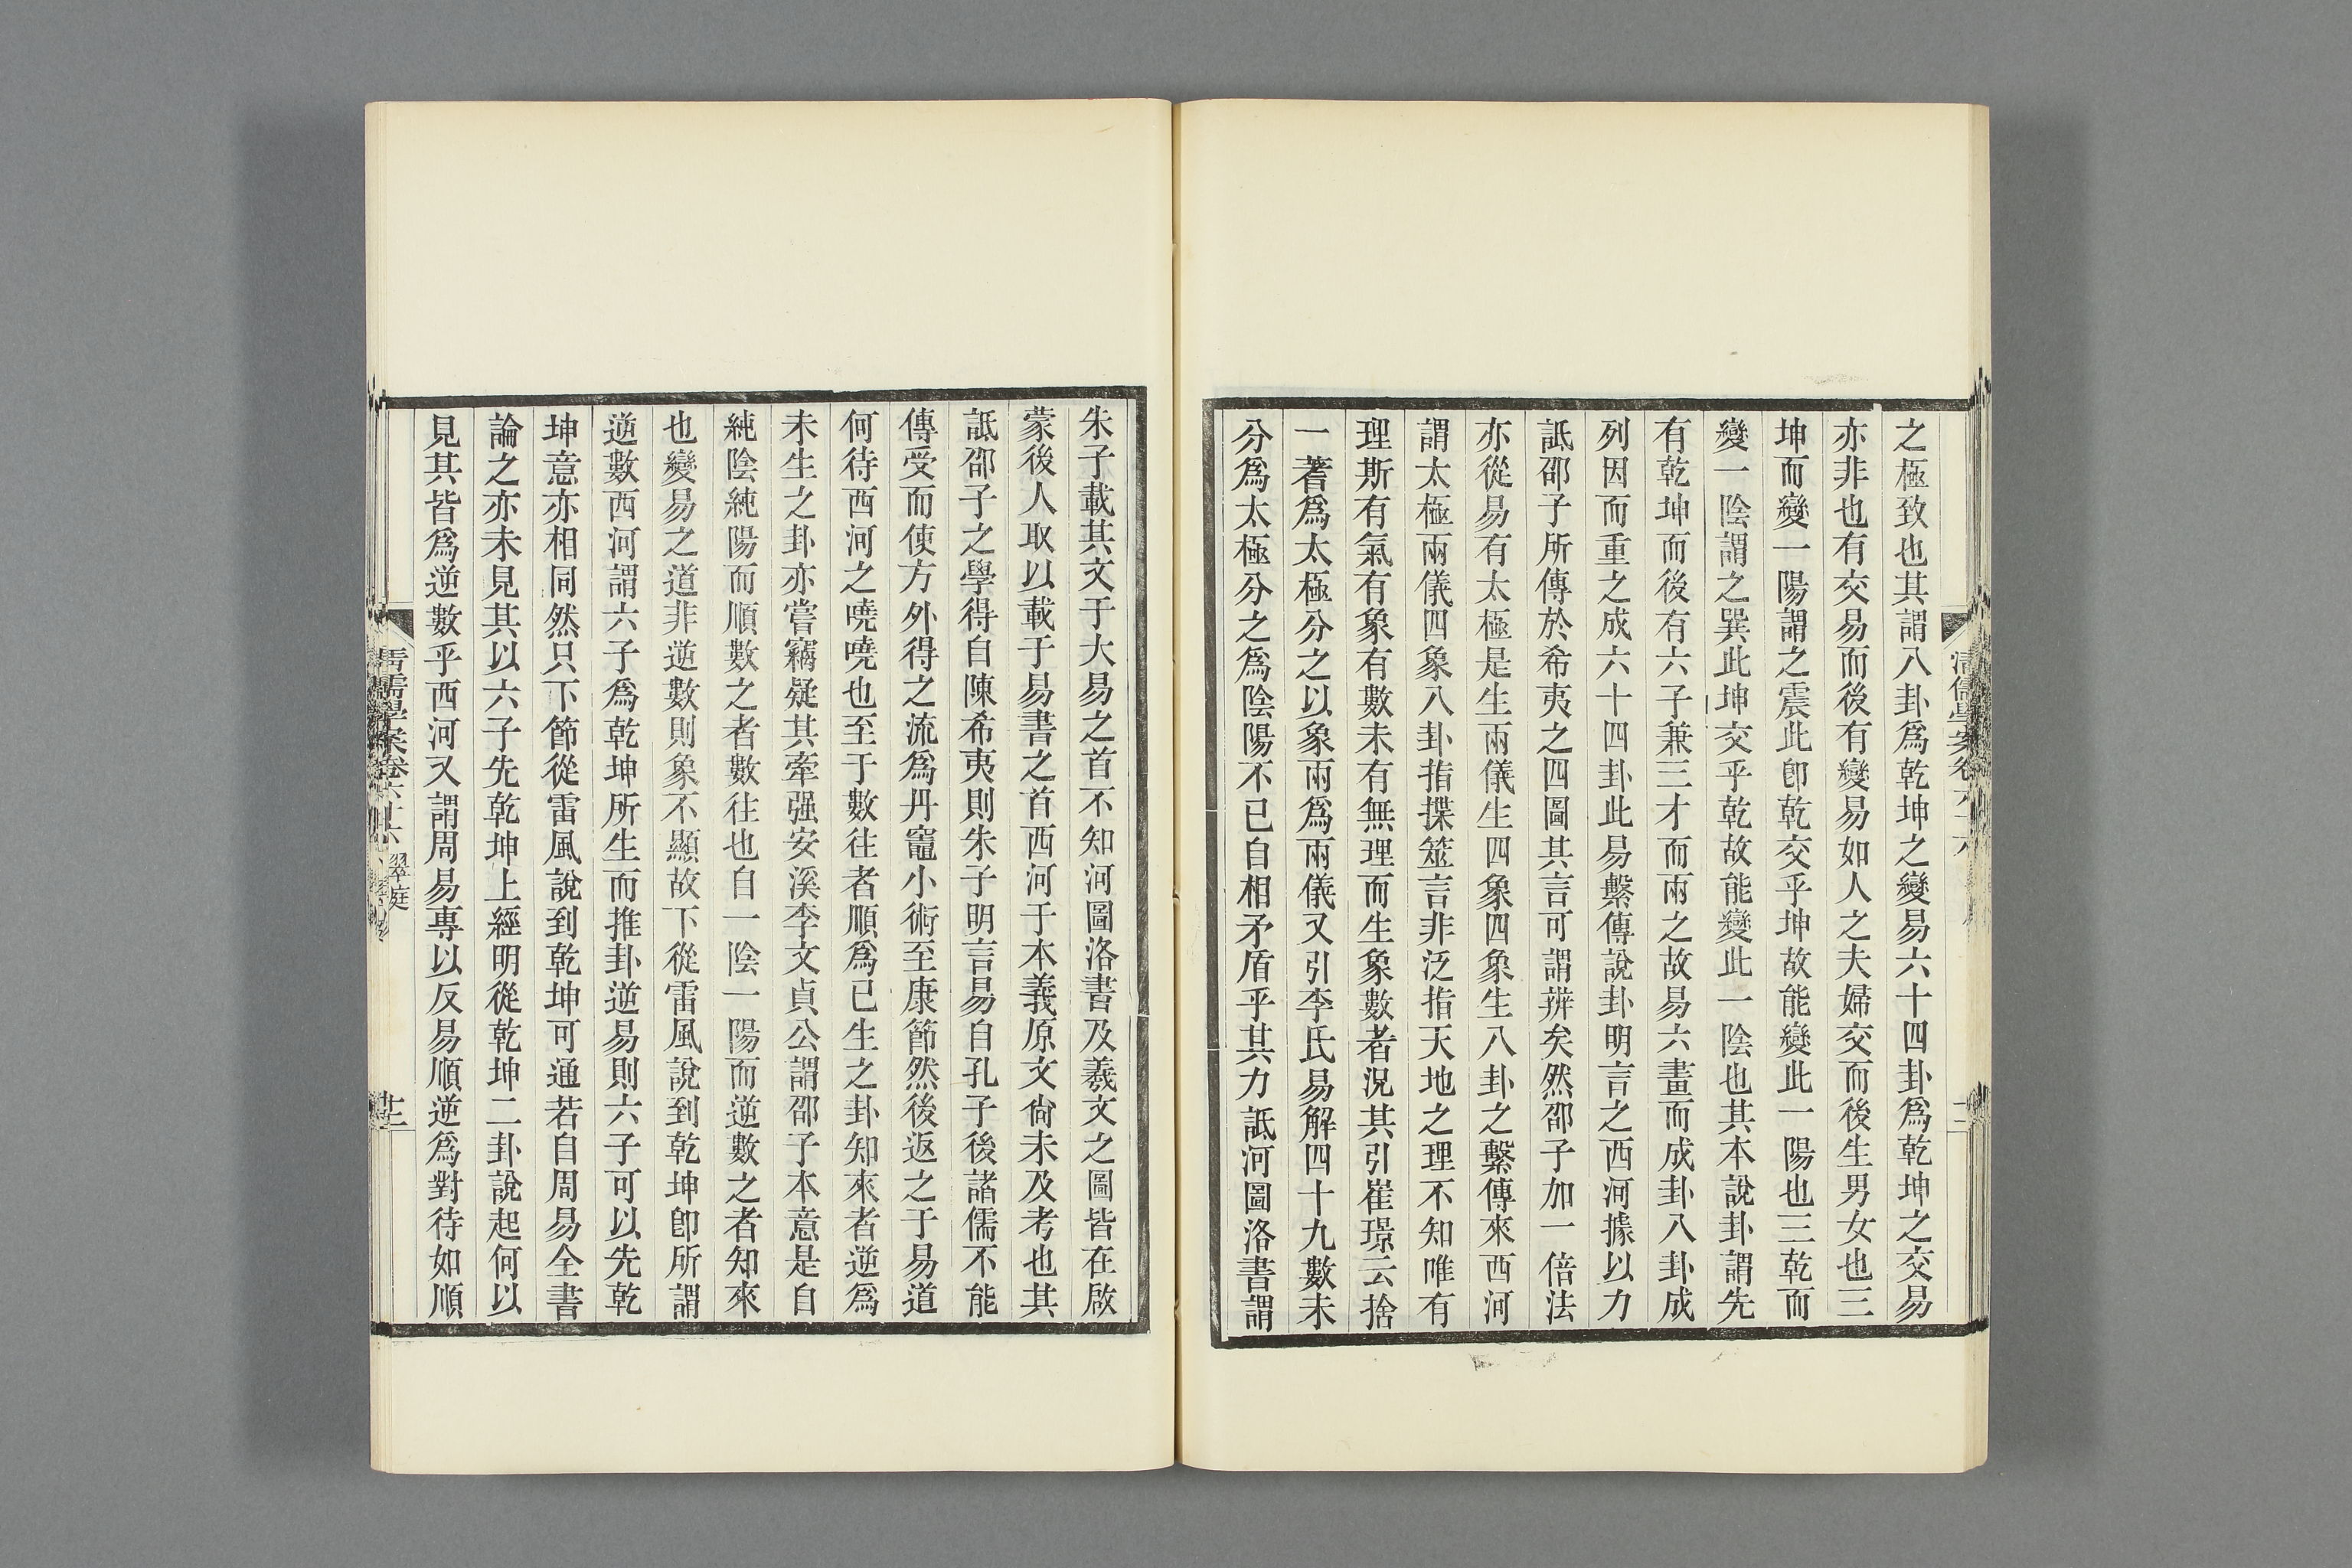 之極致也其謂八卦爲乾坤之變易六十四卦爲乾坤之交易
亦非也有交易而後有變易如人之夫婦交而後生男女也三
坤而變一陽謂之震此卽乾交乎坤故能變此一陽也三乾而
變一陰謂之巽此坤交乎乾故能變此一陰也其本說卦謂先
有乾坤而後有六子兼三才而兩之故易六畫而成卦八卦成
列因而重之成六十四卦此易繫傳說卦明言之西河據以力
詆邵子所傳於希夷之四圖其言可謂辨矣然邵子加一倍法
亦從易有太極是生兩儀生四象四象生八卦之繫傳來西河
謂太極兩儀四象八卦指揲筮言非泛指天地之理不知唯有
理斯有氣有象有數未有無理而生象數者況其引崔璟云捨
一蓍爲太極分之以象兩爲兩儀又引李氏易解四十九數未
分爲太極分之爲陰陽不已自相矛盾乎其力詆河圖洛書謂
朱子載其文于大易之首不知河圖洛書及羲文之圖皆在啟
蒙後人取以載于易書之首西河于本義原文尙未及考也其
詆邵子之學得自陳希夷則朱子明言易自孔子後諸儒不能
傳受而使方外得之流爲丹竈小術至康節然後返之于易道
何待西河之嘵嘵也至于數往者順爲已生之卦知來者逆爲
未生之卦亦嘗竊疑其牽强安溪李文貞公謂邵子本意是自
純陰純陽而順數之者數往也自一陰一陽而逆數之者知來
也變易之道非逆數則象不顯故下從雷風說到乾坤卽所謂
逆數西河謂六子爲乾坤所生而推卦逆易則六子可以先乾
坤意亦相同然只下節從雷風說到乾坤可通若自周易全書
論之亦未見其以六子先乾坤上經明從乾坤二卦說起何以
見其皆爲逆數乎西河又謂周易專以反易順逆爲對待如順
清儒學案卷六十六 翠庭